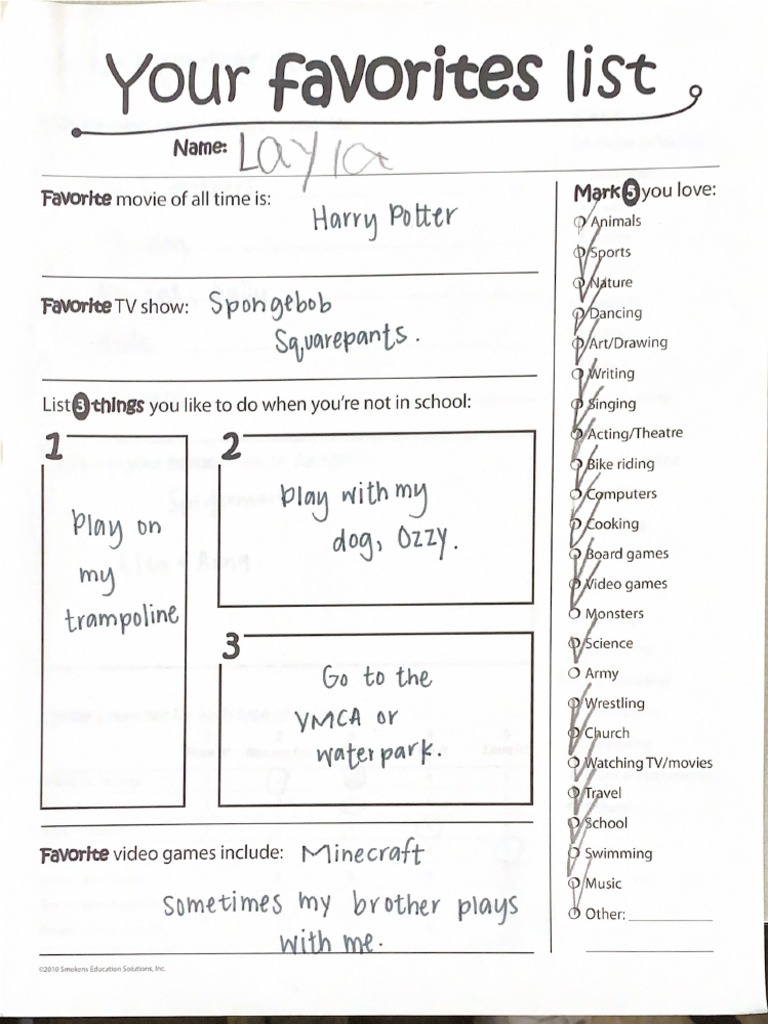 Your favorites list
Name: Layla
Favorite movie of all time is:
Harry Potter
Favorite TV show: Spongebob
Squarepants.
List 3 things you like to do when you're not in school:
1
play on
my
trampoline
2
play with my
dog, Ozzy.
3
Go to the
YMCA or
waterpark.
Favorite video games include: Minecraft
sometimes my brother plays
with me.
©2010 Smekens Education Solutions, Inc.
Mark 5 you love:
Animals
Sports
Nature
Dancing
Art/Drawing
Writing
Singing
Acting/Theatre
Bike riding
Computers
Cooking
Board games
Video games
Monsters
Science
Army
Wrestling
Church
Watching TV/movies
Travel
School
Swimming
Music
Other: